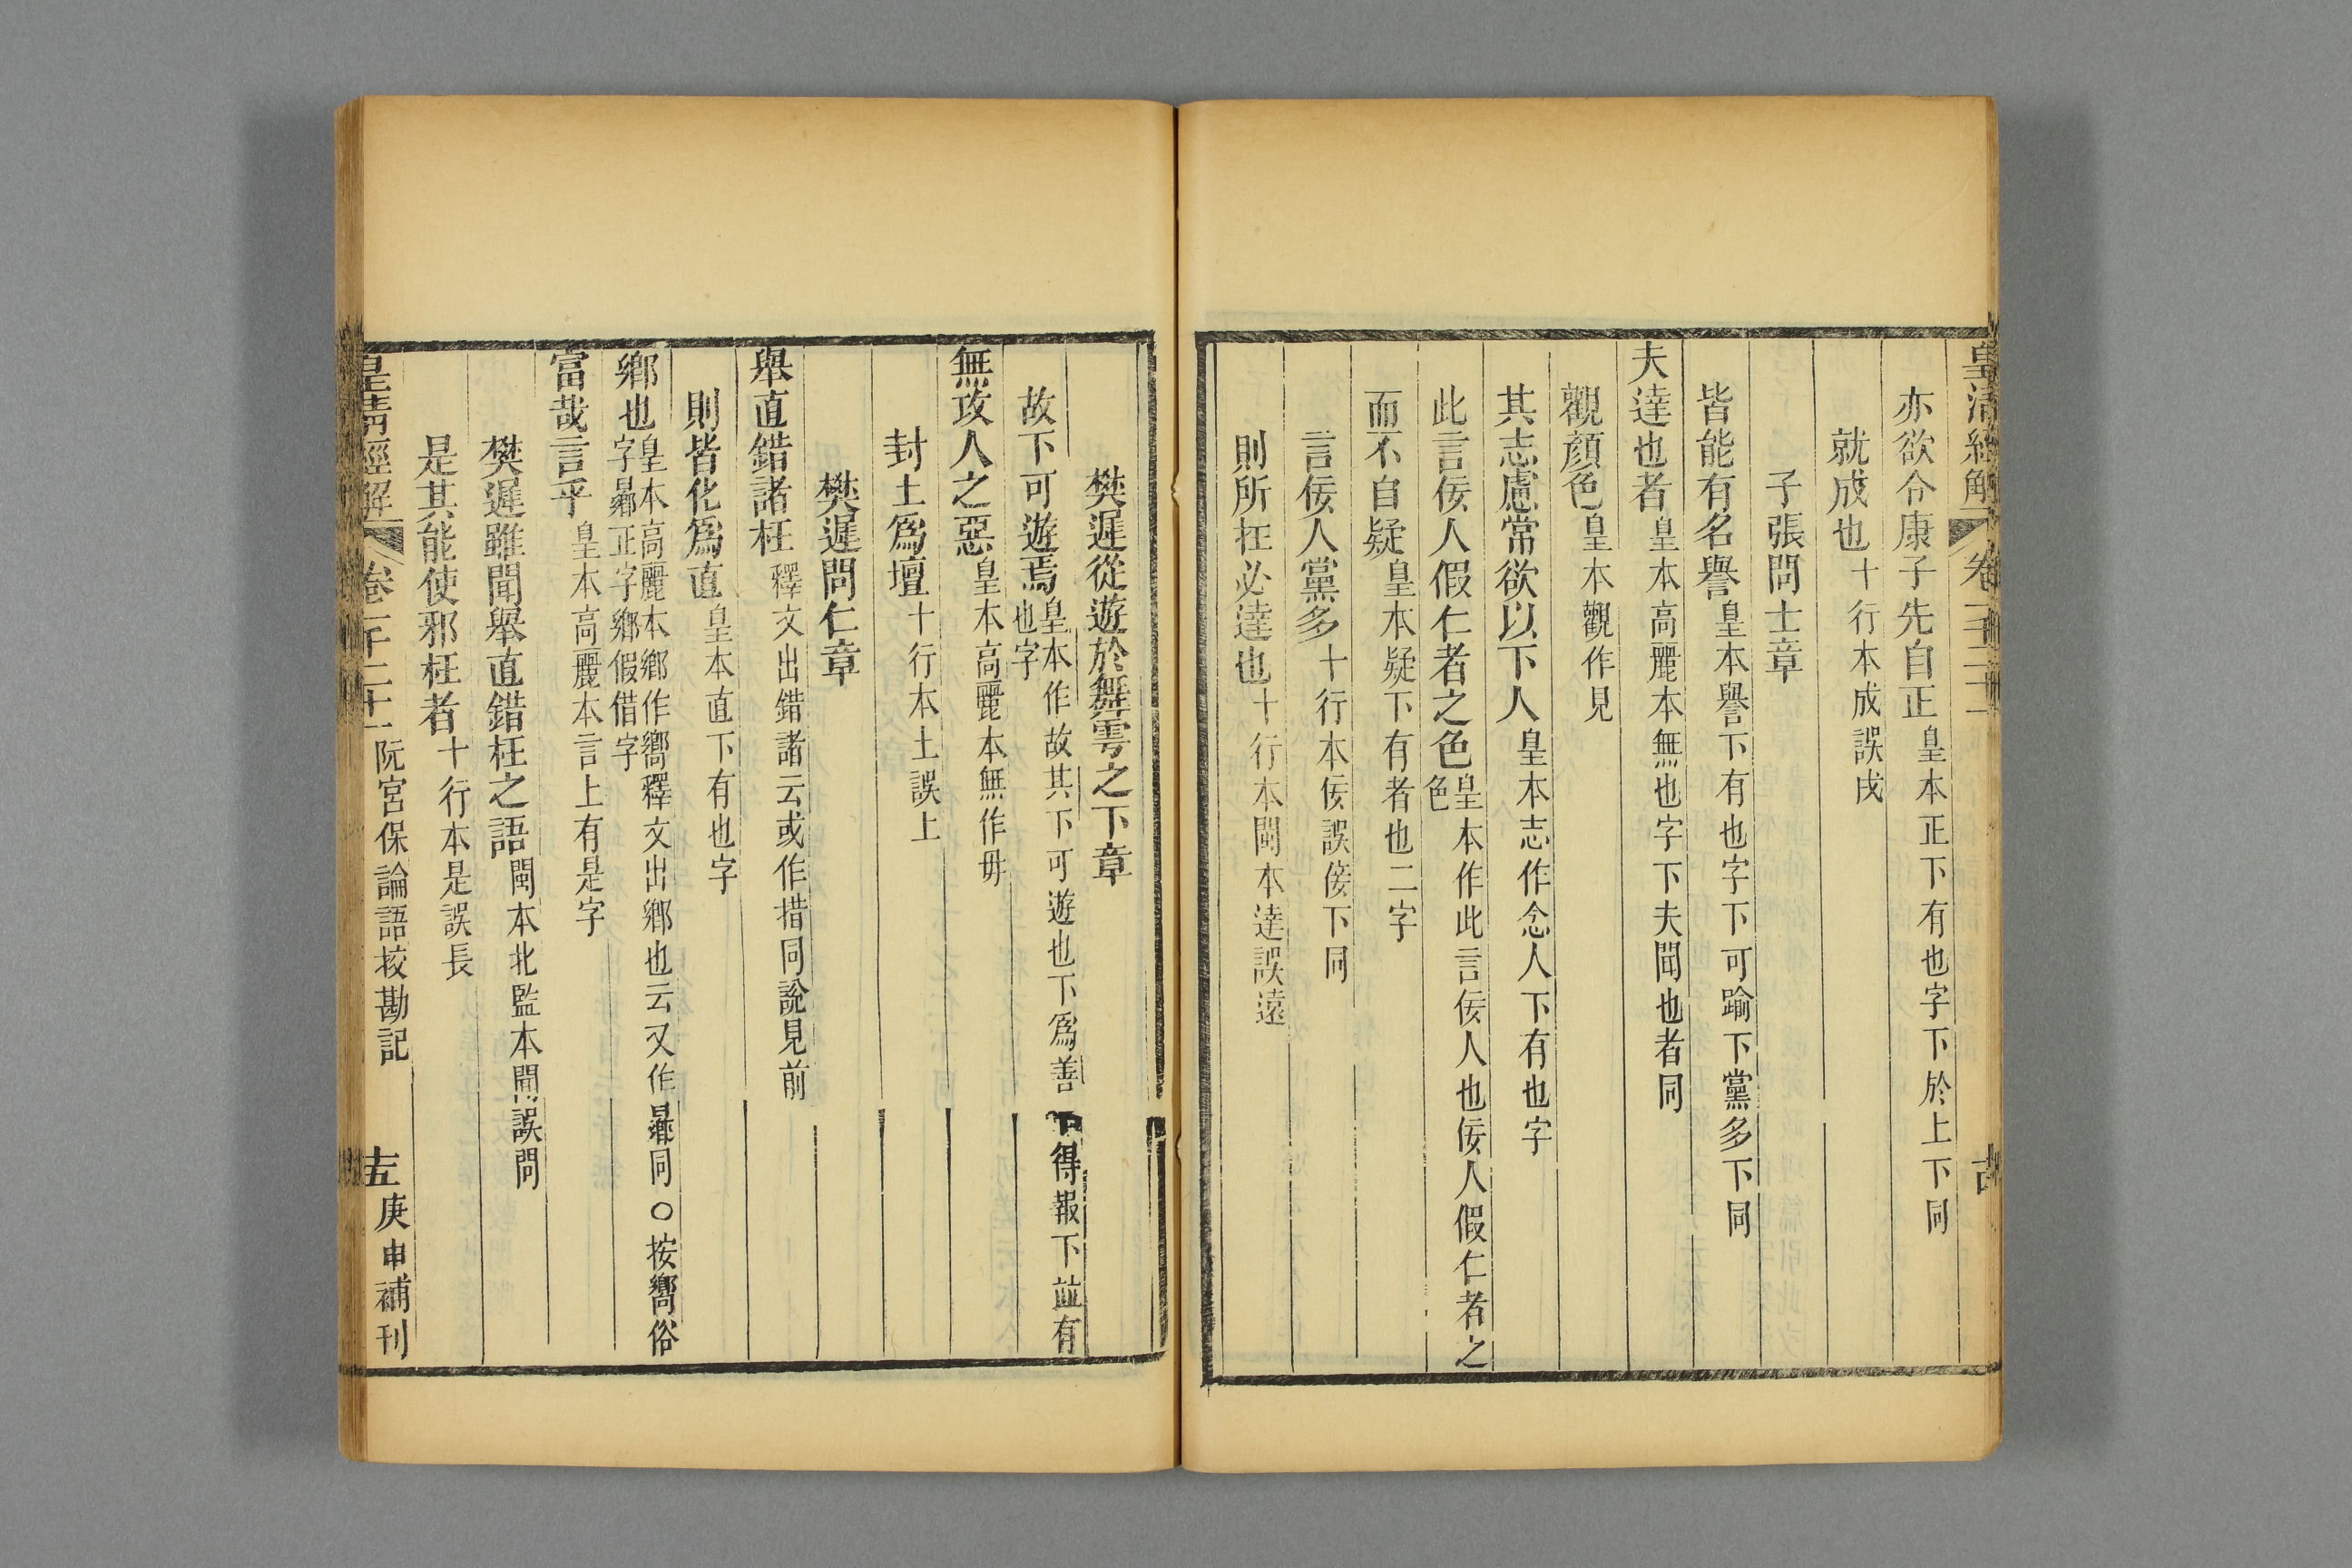 皇清經解 卷一千二十一 古
亦欲令康子先自正皇本正下有也字下於上下同
就成也十行本成誤戌
子張問士章
皆能有名譽皇本譽下有也字下可踰下黨多下同
夫達也者皇本高麗本無也字下夫聞也者同
觀顏色皇本觀作見
其志慮常欲以下人皇本志作念人下有也字
此言佞人假仁者之色皇本作此言佞人也佞人假仁者之色
而不自疑皇本疑下有者也二字
言佞人黨多十行本佞誤倿下同
則所在必達也十行本閩本達誤遠
樊遲從遊於舞雩之下章
故下可遊焉皇本作故其下可遊也下爲善下得報下竝有也字
無攻人之惡皇本高麗本無作毋
封土爲壇十行本土誤上
樊遲問仁章
舉直錯諸枉釋文出錯諸云或作措同說見前
則皆化爲直皇本直下有也字
鄉也皇本高麗本鄉作嚮釋文出鄉也云又作曏同○按嚮俗字曏正字鄉假借字
富哉言乎皇本高麗本言上有是字
樊遲雖聞舉直錯枉之語閩本北監本聞誤問
是其能使邪枉者十行本是誤長
皇清經解 卷一千二十一 阮宮保論語挍勘記 圡 庚申補刊